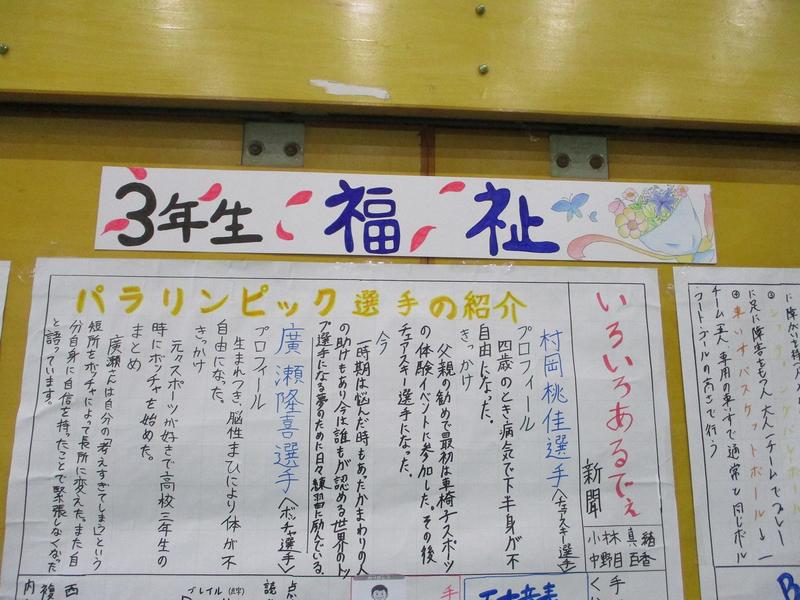 3年生 福祉
パラリンピック選手の紹介
いろいろあるでぇ
新聞
小林真緒
中野目百香
村岡桃佳選手〈チェアスキー選手〉
プロフィール
四歳のとき病気で下半身が不
自由になった。
きっかけ
父親の勧めで最初は車椅子スポーツ
の体験イベントに参加した。その後
チェアスキー選手になった。
今
一時期は悩んだ時もあったがまわりの人
の助けもあり今は誰もが認める世界のトッ
プ選手になる夢のために日々練習に励んでいる。
廣瀬隆喜選手〈ボッチャ選手〉
プロフィール
生まれつき、脳性まひにより体が不
自由になった。
きっかけ
元々スポーツが好きで高校三年生の
時にボッチャを始めた。
まとめ
廣瀬さんは自分の「考えすぎてしまう」という
短所をボッチャによって長所に変えた。また自
分自身に自信を持ったことで緊張しなくなった
と語っています。
に足に障害をもつ大人一チームでプレー
④車いすバスケットボール↓一
チーム五人専用の車いすで通常と同じボール
コート・ゴールの高さで行う
点
読
ブレイル(点字)
西
複
内
手
く